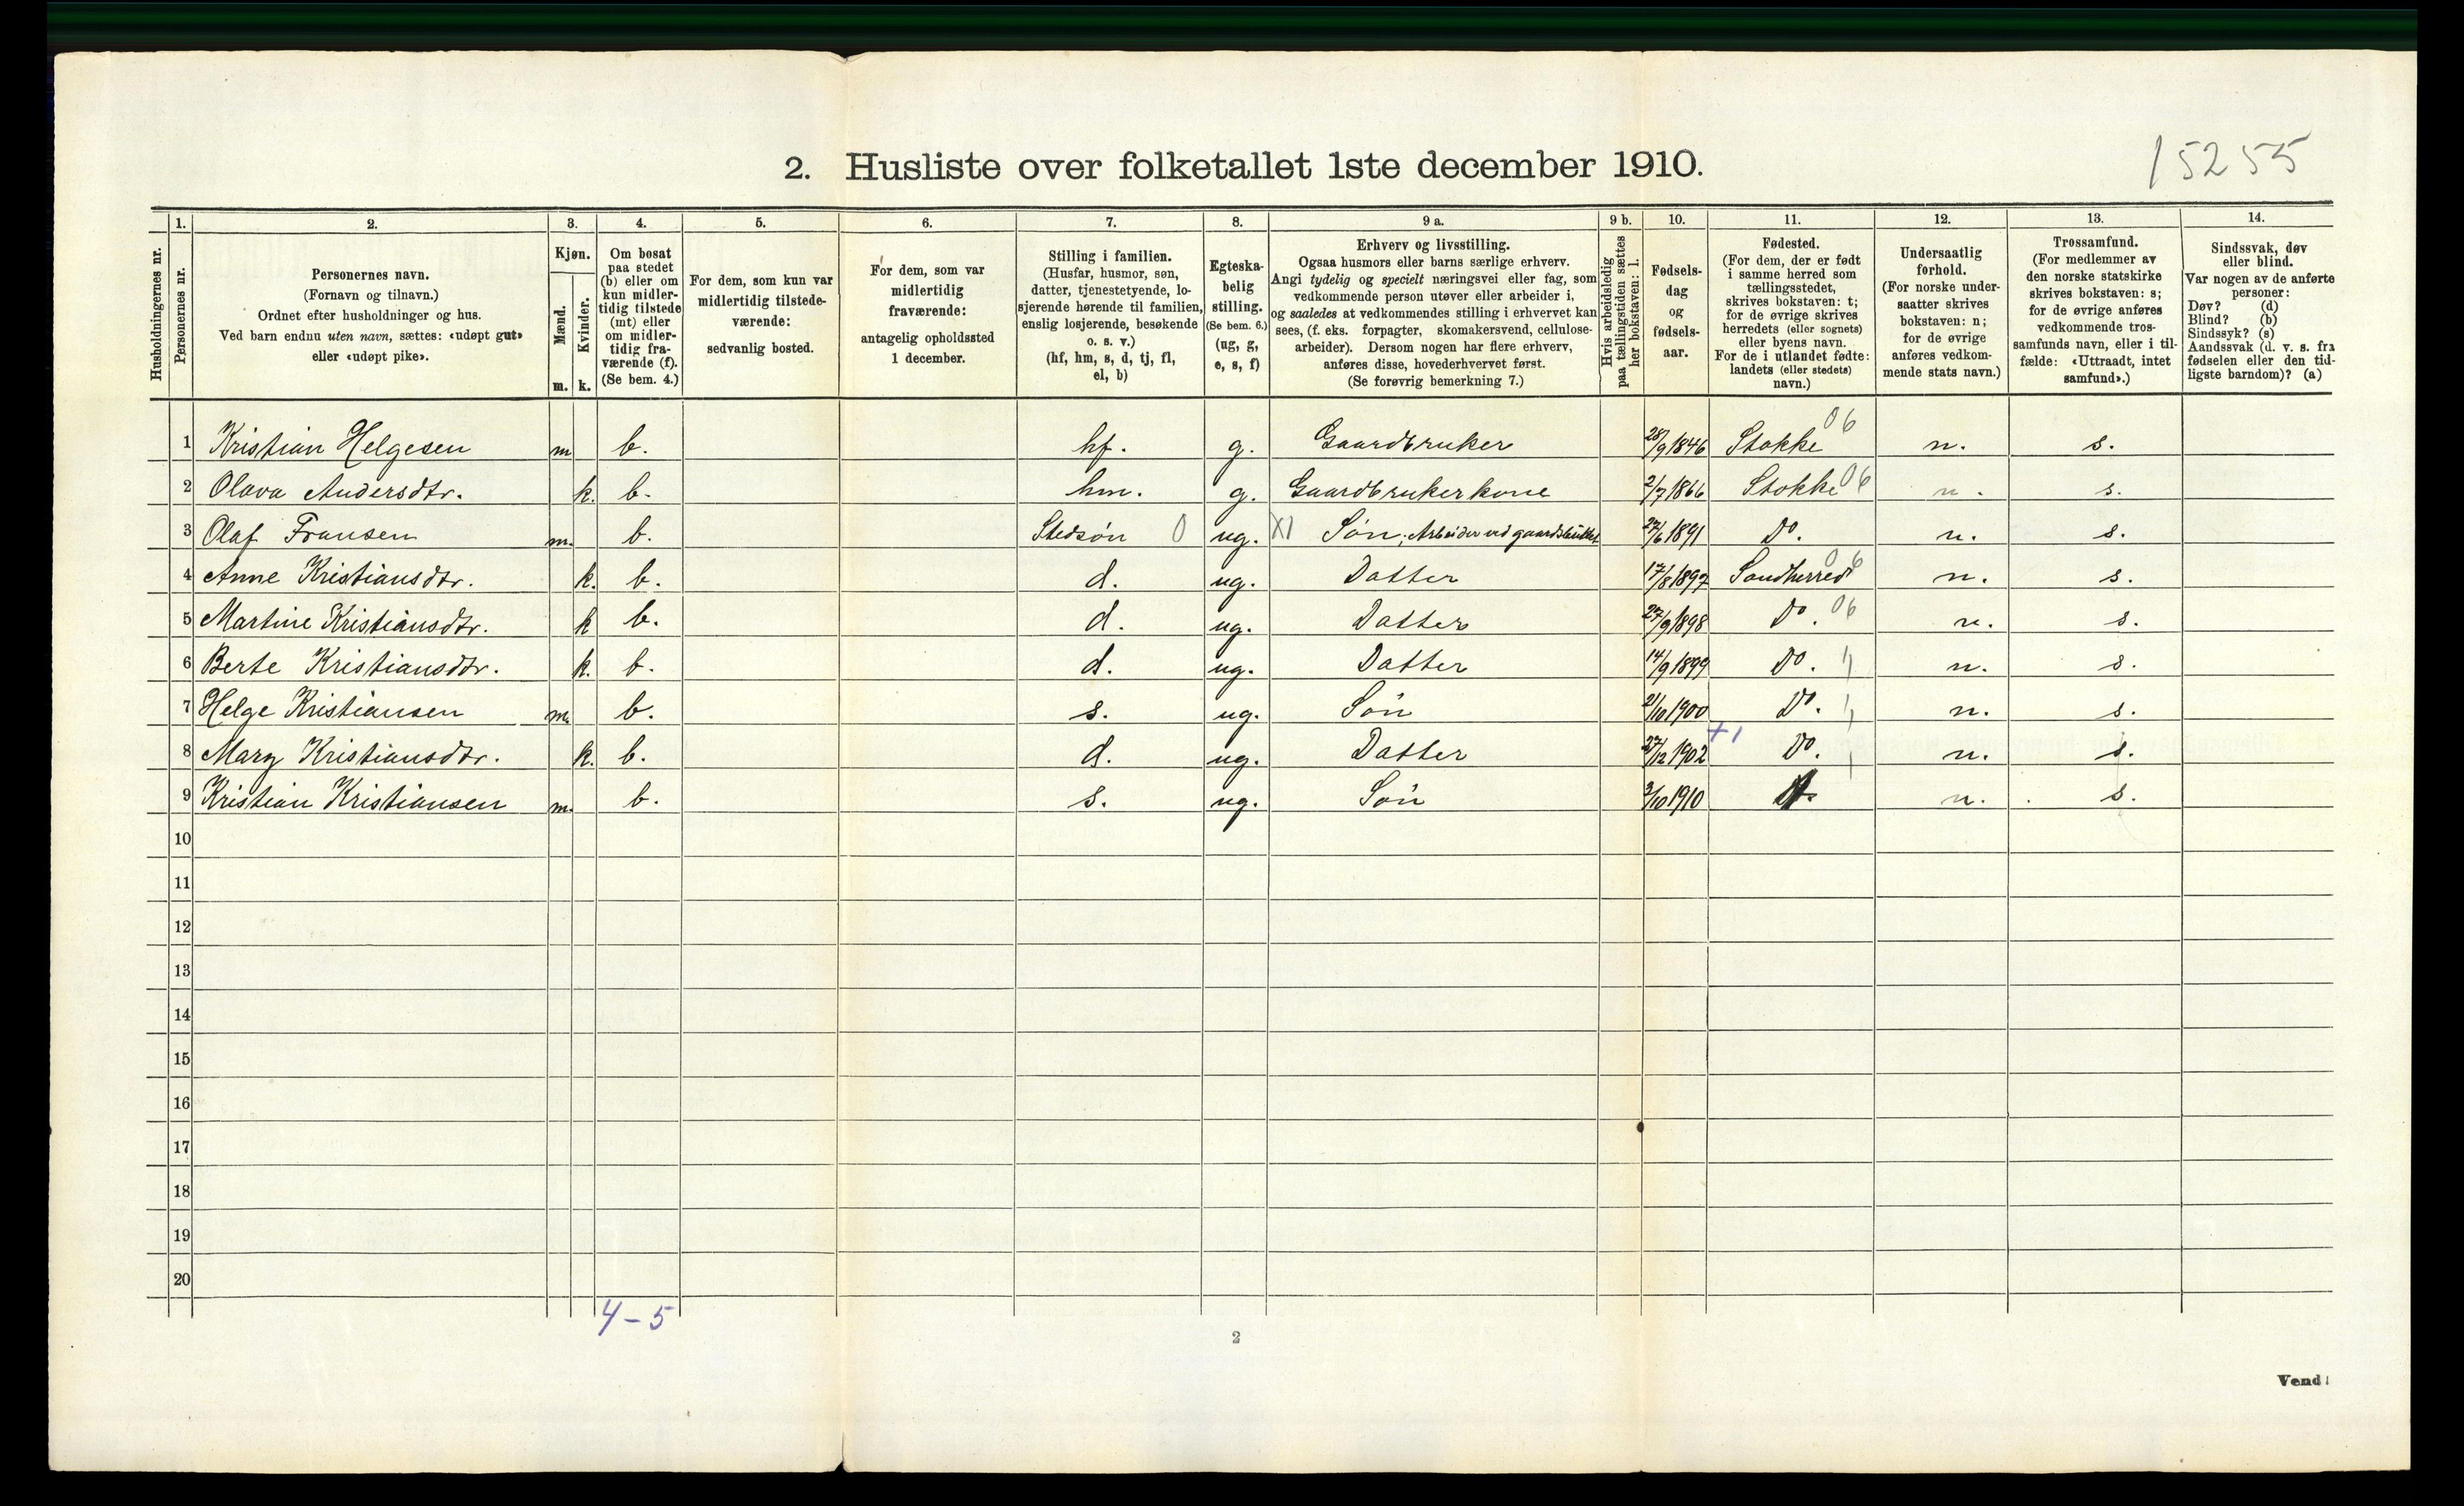 15255
2. Husliste over folketallet 1ste december 1910.
Husholdningernes nr.
1. Personernes nr.
2. Personernes navn. (Fornavn og tilnavn.) Ordnet efter husholdninger og hus. Ved barn endnu uten navn, sættes: «udøpt gut» eller «udøpt pike».
3. Kjøn. Mænd. m. Kvinder. k.
4. Om bosat paa stedet (b) eller om kun midlertidig tilstede (mt) eller om midlertidig fraværende (f). (Se bem. 4.)
5. For dem, som kun var midlertidig tilstedeværende: sedvanlig bosted.
6. For dem, som var midlertidig fraværende: antagelig opholdssted 1 december.
7. Stilling i familien. (Husfar, husmor, søn, datter, tjenestetyende, losjerende hørende til familien, enslig losjerende, besøkende o. s. v.) (hf, hm, s, d, tj, fl, el, b)
8. Egteskabelig stilling. (Se bem. 6.) (ug, g, e, s, f)
9 a. Erhverv og livsstilling. Ogsaa husmors eller barns særlige erhverv. Angi tydelig og specielt næringsvei eller fag, som vedkommende person utøver eller arbeider i, og saaledes at vedkommendes stilling i erhvervet kan sees, (f. eks. forpagter, skomakersvend, cellulosearbeider). Dersom nogen har flere erhverv, anføres disse, hovederhvervet først. (Se forøvrig bemerkning 7.)
9 b. Hvis arbeidsledig paa tællingstiden sættes her bokstaven: l.
10. Fødselsdag og fødselsaar.
11. Fødested. (For dem, der er født i samme herred som tællingsstedet, skrives bokstaven: t; for de øvrige skrives herredets (eller sognets) eller byens navn. For de i utlandet fødte: landets (eller stedets) navn.)
12. Undersaatlig forhold. (For norske undersaatter skrives bokstaven: n; for de øvrige anføres vedkommende stats navn.)
13. Trossamfund. (For medlemmer av den norske statskirke skrives bokstaven: s; for de øvrige anføres vedkommende trossamfunds navn, eller i tilfælde: «Uttraadt, intet samfund».)
14. Sindssvak, døv eller blind. Var nogen av de anførte personer: Døv? (d) Blind? (b) Sindssyk? (s) Aandssvak (d. v. s. fra fødselen eller den tidligste barndom)? (a)
1 Kristian Helgesen m b. hf. g. Gaardbruker 28/9 1846 Stokke 06 n. s.
2 Olava Andersdtr. k. b. hm. g. Gaardbrukerkone 2/7 1866 Stokke 06 n. s.
3 Olaf Fransen m. b. Stedsøn 0 ug. X1 Søn; Arbeider ved gaardsbruket 27/6 1891 Do. n. s.
4 Anne Kristiansdtr. k. b. d. ug. Datter 17/8 1897 Sandherred 06 n. s.
5 Martine Kristiansdtr. k b. d. ug. Datter 27/9 1898 Do. 06 n. s.
6 Berte Kristiansdtr. k. b. d. ug. Datter 14/9 1899 Do. n. s.
7 Helge Kristiansen m. b. s. ug. Søn 2/10 1900 Do. n. s.
8 Mary Kristiansdtr. k. b. d. ug. Datter 27/12 1902 +1 Do. n. s.
9 Kristian Kristiansen m. b. s. ug. Søn 3/10 1910 n. s.
10
11
12
13
14
15
16
17
18
19
20
4-5
2
Vend!